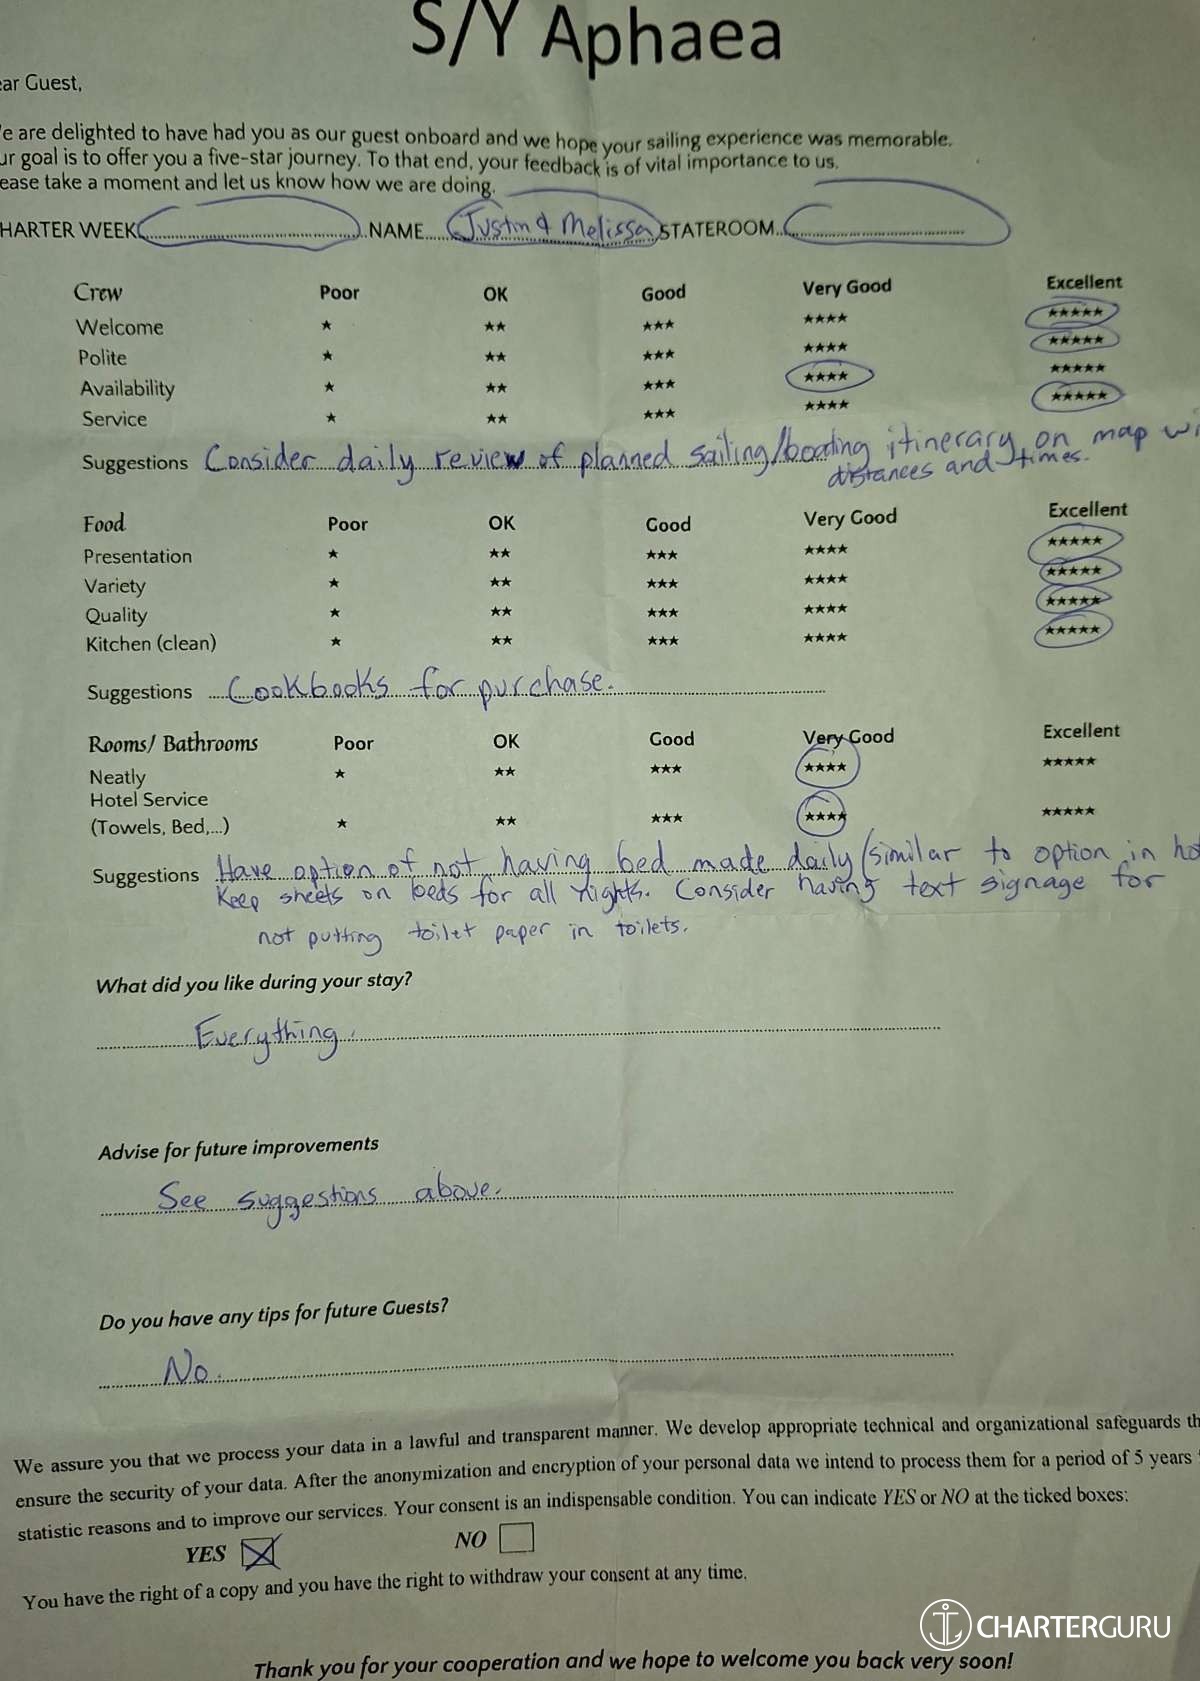 S/Y Aphaea
ear Guest,
e are delighted to have had you as our guest onboard and we hope your sailing experience was memorable.
ur goal is to offer you a five-star journey. To that end, your feedback is of vital importance to us.
ease take a moment and let us know how we are doing.
HARTER WEEK NAME Justin & Melissa STATEROOM
Crew Poor OK Good Very Good Excellent
Welcome ★ ★★ ★★★ ★★★★ ★★★★★
Polite ★ ★★ ★★★ ★★★★ ★★★★★
Availability ★ ★★ ★★★ ★★★★ ★★★★★
Service ★ ★★ ★★★ ★★★★ ★★★★★
Suggestions Consider daily review of planned sailing/boating itinerary on map wi
distances and times.
Food Poor OK Good Very Good Excellent
Presentation ★ ★★ ★★★ ★★★★ ★★★★★
Variety ★ ★★ ★★★ ★★★★ ★★★★★
Quality ★ ★★ ★★★ ★★★★ ★★★★★
Kitchen (clean) ★ ★★ ★★★ ★★★★ ★★★★★
Suggestions Cookbooks for purchase.
Rooms/ Bathrooms Poor OK Good Very Good Excellent
Neatly ★ ★★ ★★★ ★★★★ ★★★★★
Hotel Service
(Towels, Bed,...) ★ ★★ ★★★ ★★★★ ★★★★★
Suggestions Have option of not having bed made daily (similar to option in hot
Keep sheets on beds for all nights. Consider having text signage for
not putting toilet paper in toilets.
What did you like during your stay?
Everything.
Advise for future improvements
See suggestions above.
Do you have any tips for future Guests?
No.
We assure you that we process your data in a lawful and transparent manner. We develop appropriate technical and organizational safeguards th
ensure the security of your data. After the anonymization and encryption of your personal data we intend to process them for a period of 5 years
statistic reasons and to improve our services. Your consent is an indispensable condition. You can indicate YES or NO at the ticked boxes:
YES NO
You have the right of a copy and you have the right to withdraw your consent at any time.
CHARTERGURU
Thank you for your cooperation and we hope to welcome you back very soon!